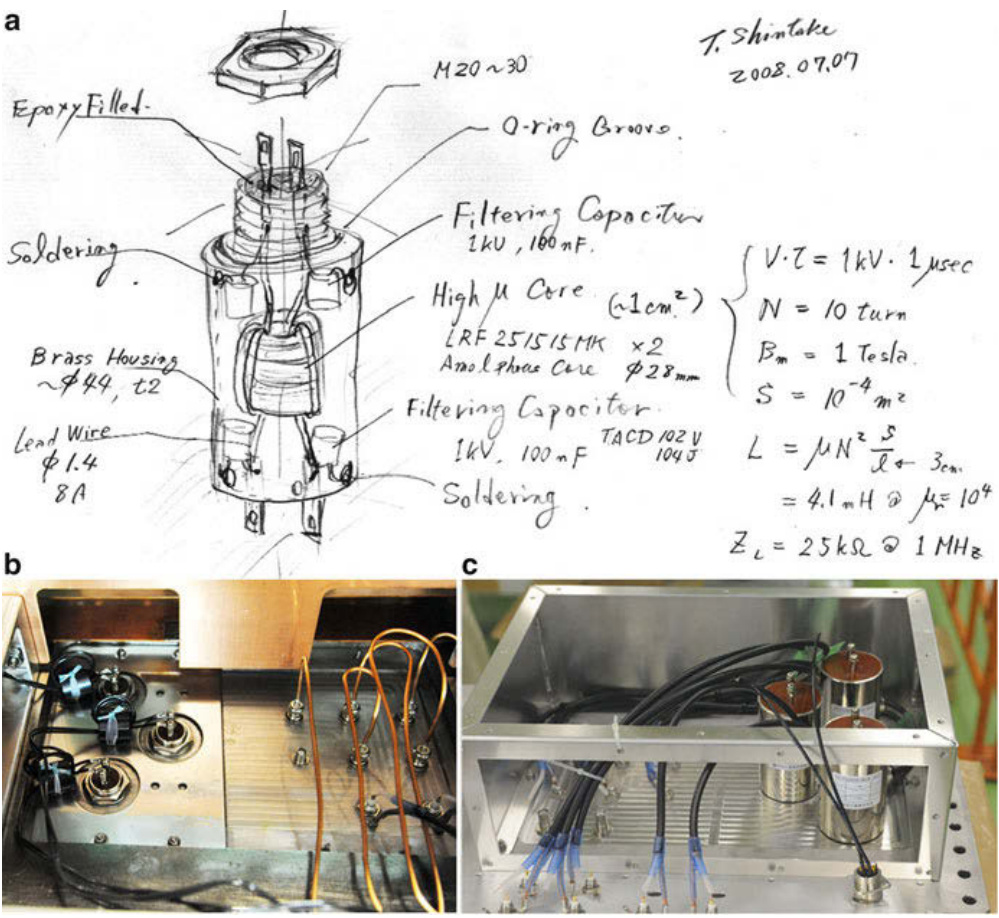 a
T. Shintake
2008.07.07
M20~30
Epoxy Filled.
O-ring Groove.
Filtering Capacitor
1kV, 100nF.
Soldering
High μ Core. (~1cm²)
LRF 251515MK ×2
Amolphous Core φ28mm
Brass Housing
~φ44, t2
Filtering Capacitor.
1kV, 100nF TACD 102V
104J
Lead Wire
φ1.4
8A
Soldering.
V·τ = 1kV·1μsec
N = 10 turn
Bm = 1 Tesla.
S = 10⁻⁴ m²
L = μN² S/l ← 3cm.
= 4.1mH @ μr = 10⁴
ZL = 25kΩ @ 1MHz
b
c